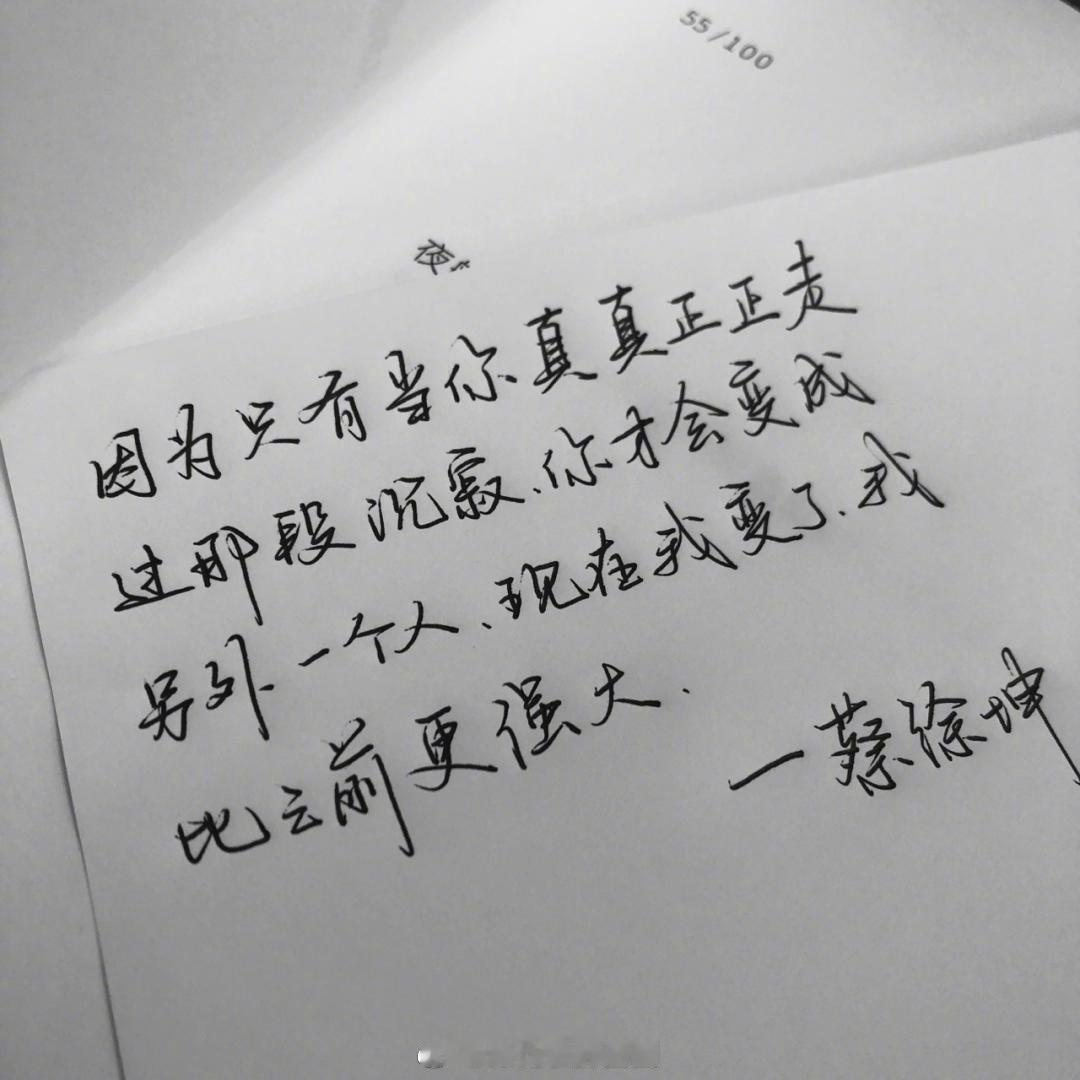 55/100
夜
因为只有当你真真正正走
过那段沉寂、你才会变成
另外一个人、现在我变了、我
比云前更强大.
一蔡徐坤